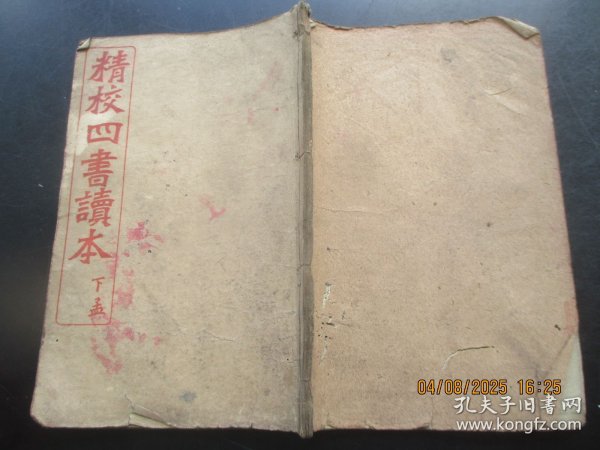 精校四書讀本
下孟
04/08/2025 16:25
孔夫子旧書网
www.kongfz.com